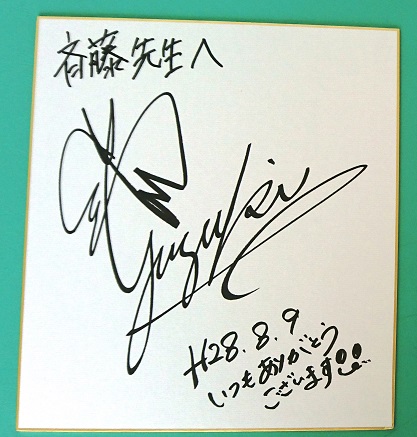 斉藤先生へ
Yuzuki
H28.8.9
いつもありがとう
ございます